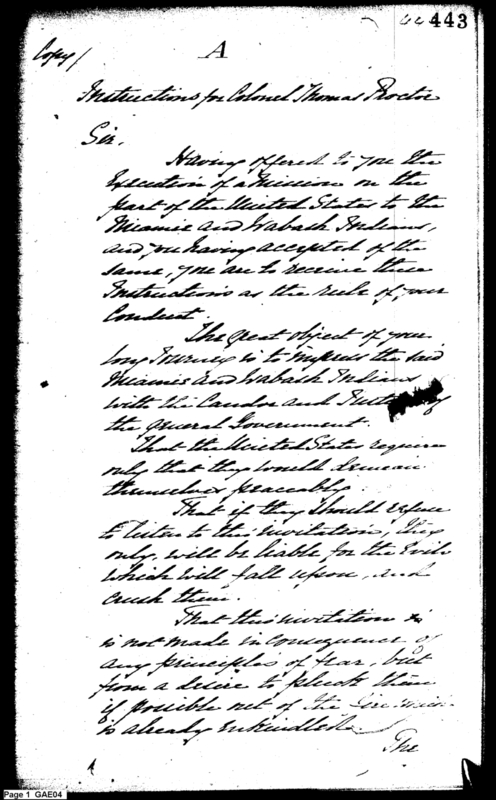 443
Copy/
A
Instructions for Colonel Thomas Proctor
Sir,
Having offered to you the
Execution of a Mission on the
part of the United States to the
Miamis and Wabash Indians,
and you having accepted of the
same, you are to receive these
Instructions as the rule of your
Conduct.
The great object of your
long Journey is to impress the said
Miamis and Wabash Indians
with the Candor and
the general Government.
That the United States require
only that they would demean
themselves peaceably.
That if they should refuse
to listen to this invitation, they
only, will be liable for the Evils
which will fall upon, and
crush them.
That this invitation is
is not made in consequence of
any principles of fear, but
from a desire to pluck them
if possible out of the fire which
is already enkindled.
The
Page 1 GAE04